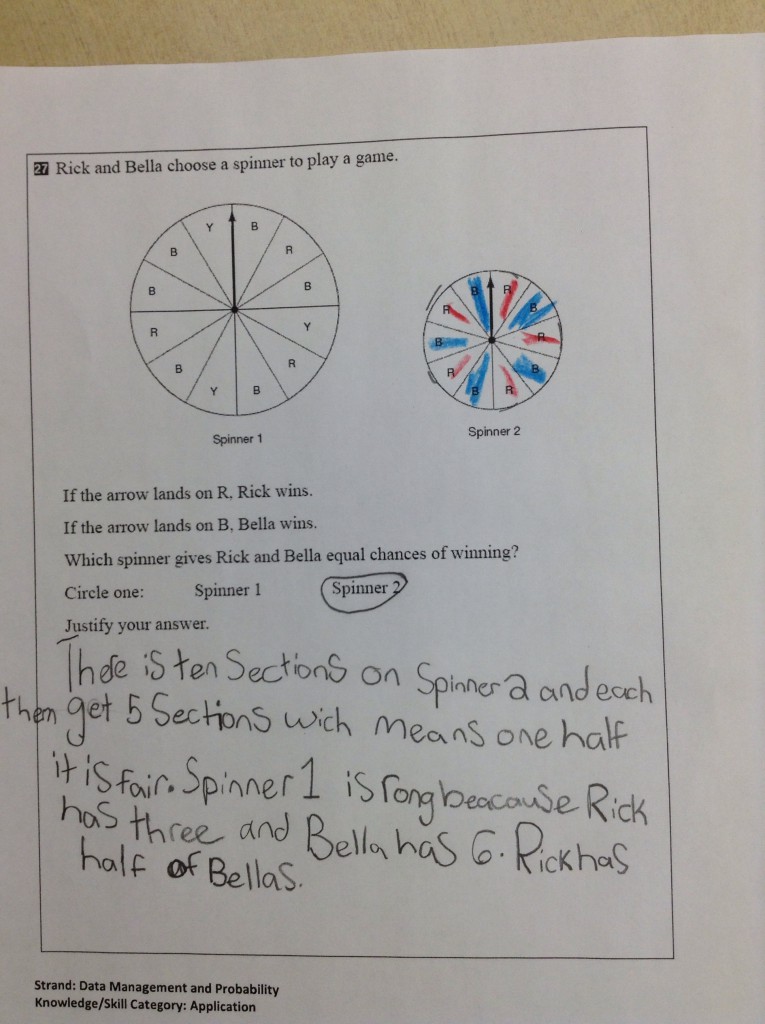 27 Rick and Bella choose a spinner to play a game.
Y B
B R
B B
R Y
B R
Y B
B R
R B
B R
R B
B R
Spinner 1
Spinner 2
If the arrow lands on R, Rick wins.
If the arrow lands on B, Bella wins.
Which spinner gives Rick and Bella equal chances of winning?
Circle one: Spinner 1 Spinner 2
Justify your answer.
There is ten Sections on Spinner 2 and each
them get 5 Sections wich means one half
it is fair. Spinner 1 is rong beacause Rick
has three and Bella has 6. Rick has
half of Bellas.
Strand: Data Management and Probability
Knowledge/Skill Category: Application